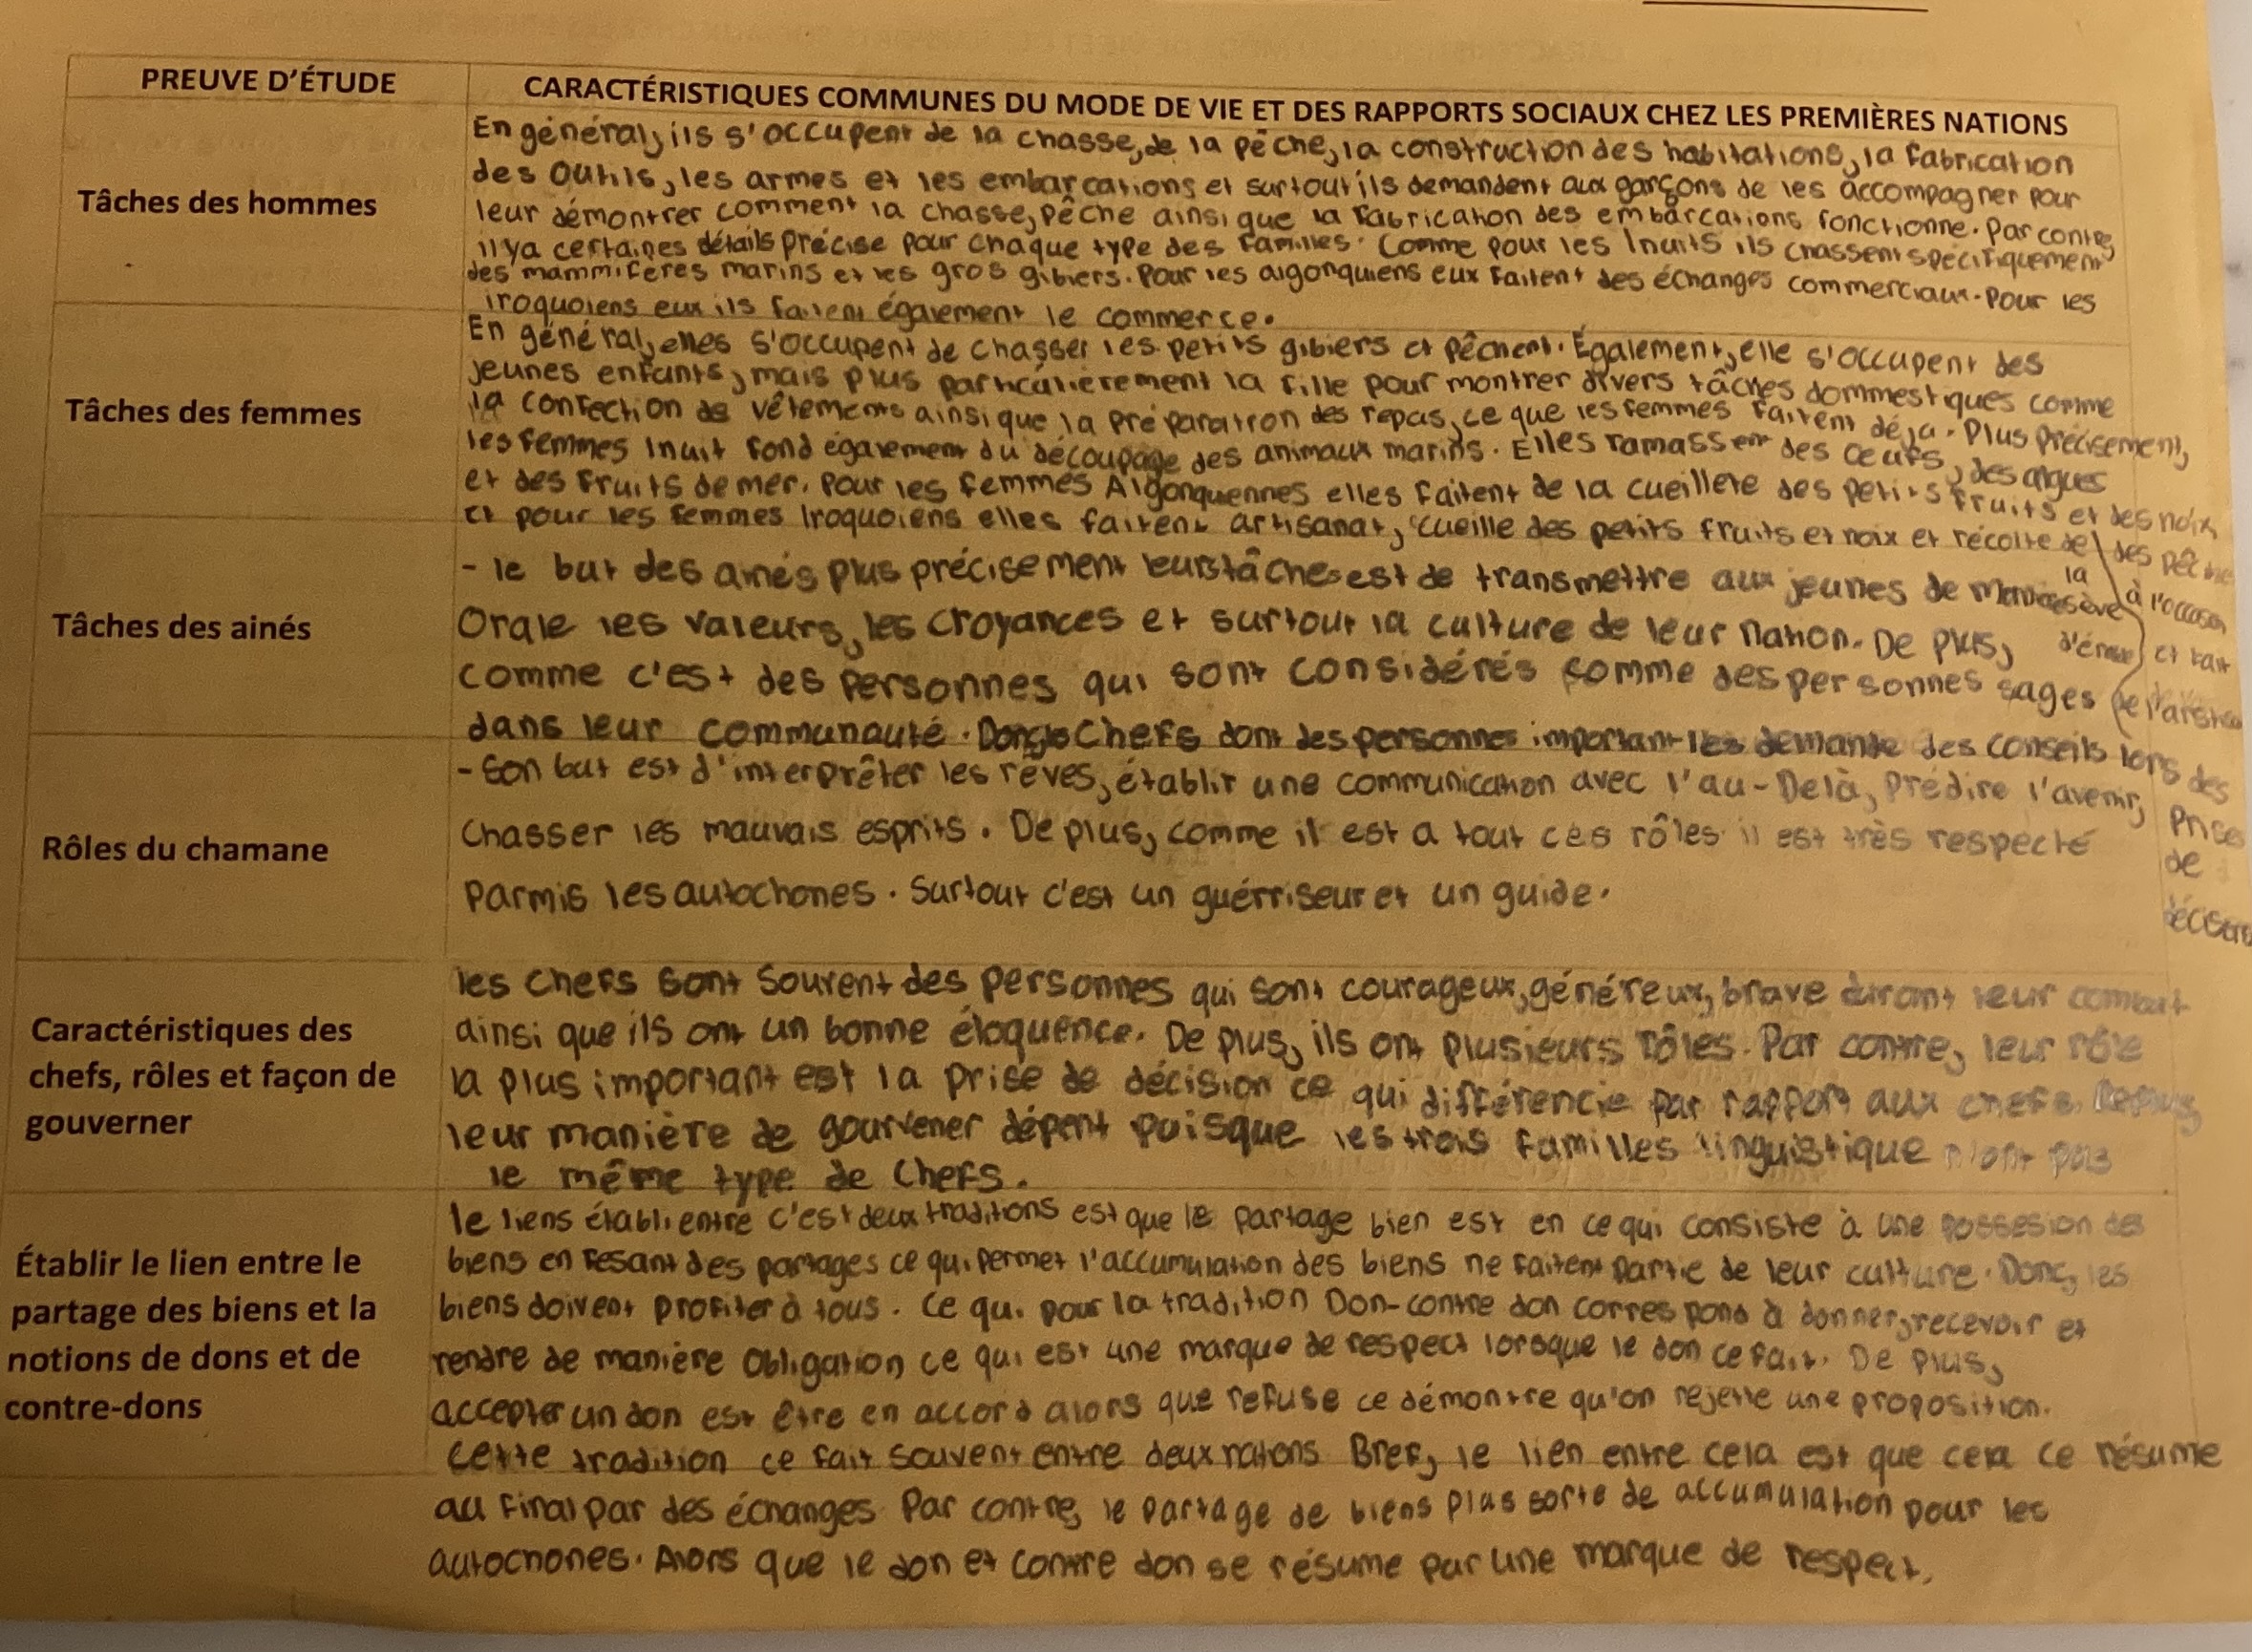 PREUVE D'ÉTUDE
CARACTÉRISTIQUES COMMUNES DU MODE DE VIE ET DES RAPPORTS SOCIAUX CHEZ LES PREMIÈRES NATIONS
Tâches des hommes
En général, ils s'occupent de la chasse, de la pêche, la construction des habitations, la fabrication
des outils, les armes et les embarcations et surtout ils demandent aux garçons de les accompagner pour
leur démontrer comment la chasse, pêche ainsi que la fabrication des embarcations fonctionne. Par contre,
il y a certaines détails précise pour chaque type des familles. Comme pour les Inuits ils chassent spécifiquement
des mammifères marins et les gros gibiers. Pour les algonquiens eux faitent des échanges commerciaux. Pour les
iroquoiens eux ils faitent également le commerce.
Tâches des femmes
En général, elles s'occupent de chasser les petits gibiers et pêchent. Également, elle s'occupent des
jeunes enfants, mais plus particulièrement la fille pour montrer divers tâches dommestiques comme
la confection de vêtements ainsi que la préparation des repas, ce que les femmes faitent déjà. Plus précisement,
les femmes Inuit fond également du découpage des animaux marins. Elles ramassent des œufs, des algues
et des fruits de mer. Pour les femmes Algonquennes elles faitent de la cueillete des petits fruits et des noix
et pour les femmes Iroquoiens elles faitent artisanat, cueille des petits fruits et noix et récolte de
la sève
d'érable
des
à l'occasion
et fait
de
Tâches des ainés
- le but des ainés plus précisement leurs tâches est de transmettre aux jeunes de
Orale les valeurs, les croyances et surtout la culture de leur nation. De plus,
comme c'est des personnes qui sont considérés comme des personnes sages
dans leur communauté. Donc les Chefs dont des personnes important les demande des conseils lors des
prises
de
décisions
Rôles du chamane
- Son but est d'interprêter les rêves, établir une communication avec l'au-Delà, prédire l'avenir,
Chasser les mauvais esprits. De plus, comme il est a tout ces rôles il est très respecté
Parmis les autochones. Surtout c'est un guérriseur et un guide.
Caractéristiques des
chefs, rôles et façon de
gouverner
les Chefs sont souvent des personnes qui sont courageux, généreux, brave durant leur combat
ainsi que ils ont un bonne éloquence. De plus, ils ont plusieurs rôles. Par contre, leur rôle
la plus important est la prise de décision ce qui différencie par rapport aux chefs. De plus,
leur manière de gourvener dépent puisque les trois familles linguistique n'ont pas
le même type de Chefs.
Établir le lien entre le
partage des biens et la
notions de dons et de
contre-dons
le liens établi entre c'est deux traditions est que le partage bien est en ce qui consiste à une possesion des
biens en fesant des partages ce qui permet l'accumulation des biens ne faitent partie de leur culture. Donc, les
biens doivent profiter à tous. Ce qui pour la tradition Don-contre don correspond à donner, recevoir et
rendre de manière Obligation ce qui est une marque de respect lorsque le don ce fait. De plus,
accepter un don est être en accord alors que refuse ce démontre qu'on rejette une proposition.
Cette tradition ce fait souvent entre deux nations. Bref, le lien entre cela est que cela ce résume
au final par des échanges. Par contre, le partage de biens plus sorte de accumulation pour les
autochones. Alors que le don et contre don se résume par une marque de respect.